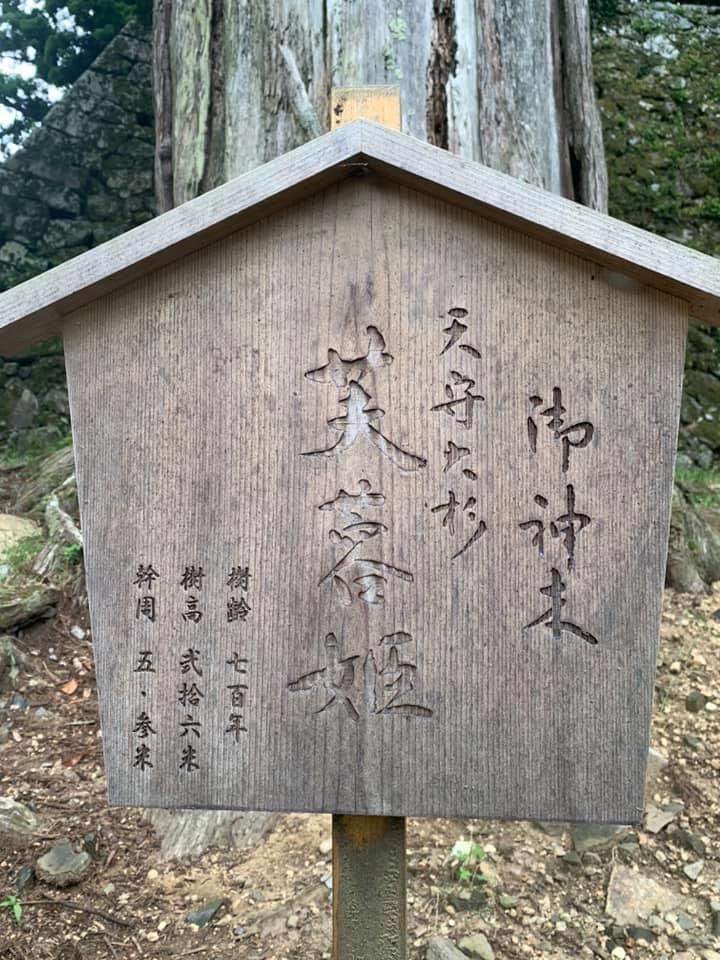 御神木
天守大杉
芙蓉姫
樹齢 七百年
樹高 弐拾六米
幹周 五、参米